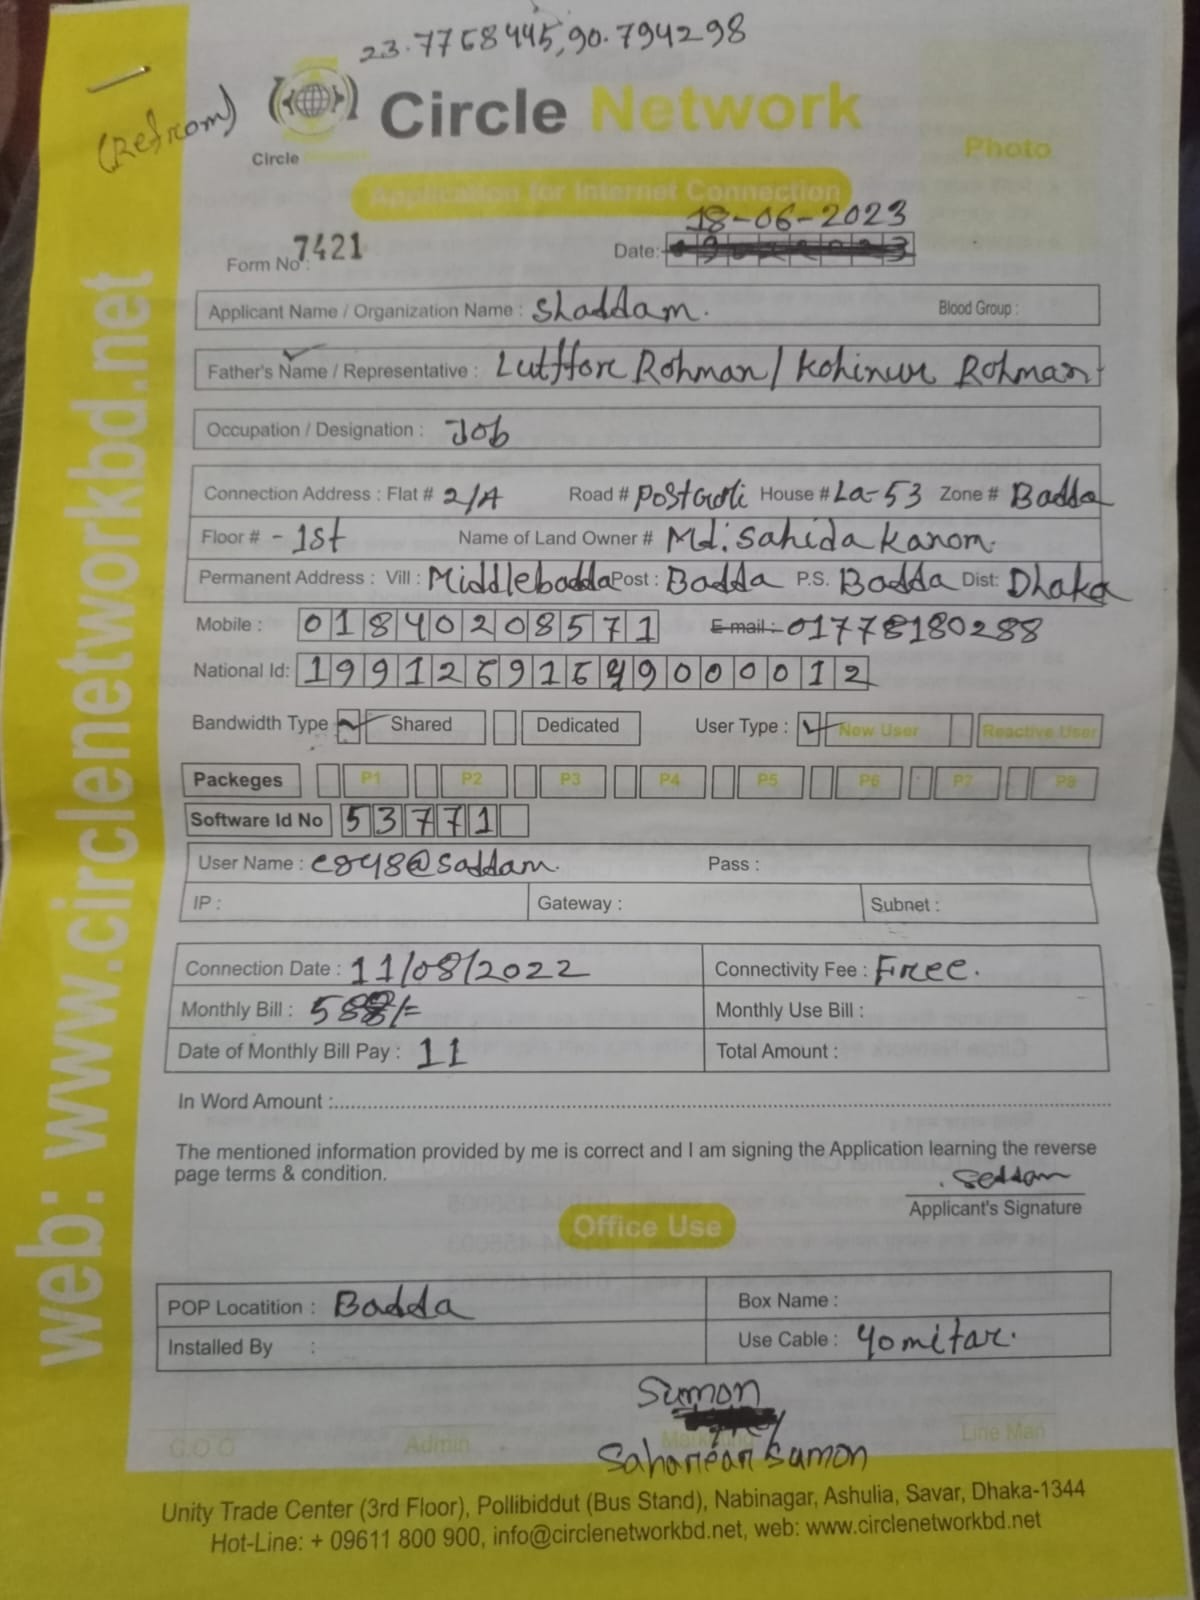 23.7768445,90.794298
(Refrom)
Circle Network
Circle
Photo
Application for Internet Connection
18-06-2023
Form No : 7421 Date:
Applicant Name / Organization Name : Shaddam. Blood Group :
Father's Name / Representative : Lutffore Rohman / Kohinur Rohman
Occupation / Designation : Job
Connection Address : Flat # 2/A Road # Postgoli House # La-53 Zone # Badda
Floor # - 1st Name of Land Owner # Md: Sahida Kanom.
Permanent Address : Vill : Middlebadda Post : Badda P.S. Badda Dist: Dhaka
Mobile : 01840208571 E-mail : 01778180288
National Id: 19912691649000012
Bandwidth Type Shared Dedicated User Type : New User Reactive User
Packeges P1 P2 P3 P4 P5 P6 P7 P8
Software Id No 53771
User Name : c848@saddam. Pass :
IP : Gateway : Subnet :
Connection Date : 11/08/2022 Connectivity Fee : Free.
Monthly Bill : 588/= Monthly Use Bill :
Date of Monthly Bill Pay : 11 Total Amount :
In Word Amount :
The mentioned information provided by me is correct and I am signing the Application learning the reverse
page terms & condition.
Seddam
Applicant's Signature
Office Use
POP Locatition : Badda Box Name :
Installed By : Use Cable : 40mitar.
Sumon
G.O O Admin Marketing Line Man
Sahariar Sumon
Unity Trade Center (3rd Floor), Pollibiddut (Bus Stand), Nabinagar, Ashulia, Savar, Dhaka-1344
Hot-Line: + 09611 800 900, info@circlenetworkbd.net, web: www.circlenetworkbd.net
web: www.circlenetworkbd.net